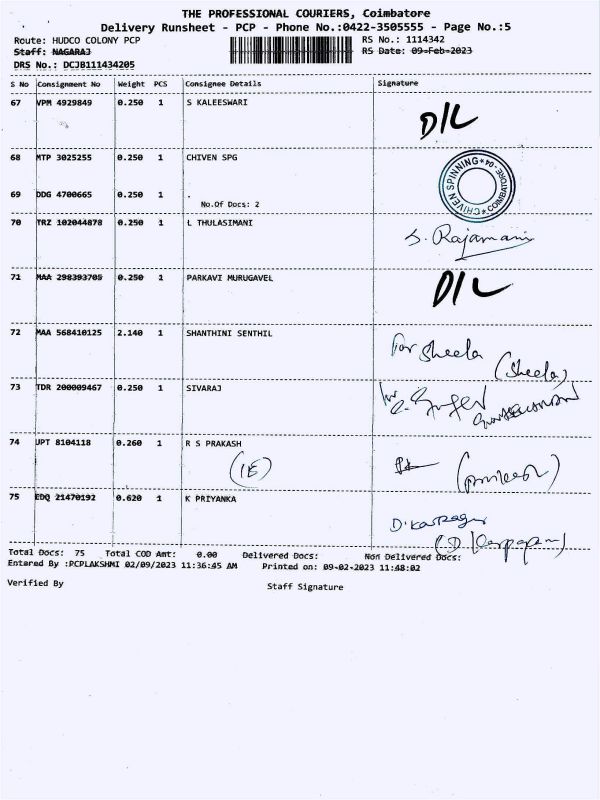 THE PROFESSIONAL COURIERS, Coimbatore
Delivery Runsheet - PCP - Phone No.:0422-3505555 - Page No.:5
Route: HUDCO COLONY PCP RS No.: 1114342
Staff: NAGARAJ RS Date: 09-Feb-2023
DRS No.: DCJB111434205
S No Consignment No Weight PCS Consignee Details Signature
67 VPM 4929849 0.250 1 S KALEESWARI D/L
68 MTP 3025255 0.250 1 CHIVEN SPG
CHIVEN SPINNING * COIMBATORE-04 *
69 DDG 4700665 0.250 1 .
No.Of Docs: 2
70 TRZ 102044878 0.250 1 L THULASIMANI S. Rajamani
71 MAA 298393705 0.250 1 PARKAVI MURUGAVEL D/L
72 MAA 568410125 2.140 1 SHANTHINI SENTHIL For Sheela (Sheela)
73 TDR 200009467 0.250 1 SIVARAJ
74 UPT 8104118 0.260 1 R S PRAKASH
(IE)
75 EDQ 21470192 0.620 1 K PRIYANKA
Total Docs: 75 Total COD Amt: 0.00 Delivered Docs: Non Delivered Docs:
Entered By :PCPLAKSHMI 02/09/2023 11:36:45 AM Printed on: 09-02-2023 11:48:02
Verified By Staff Signature